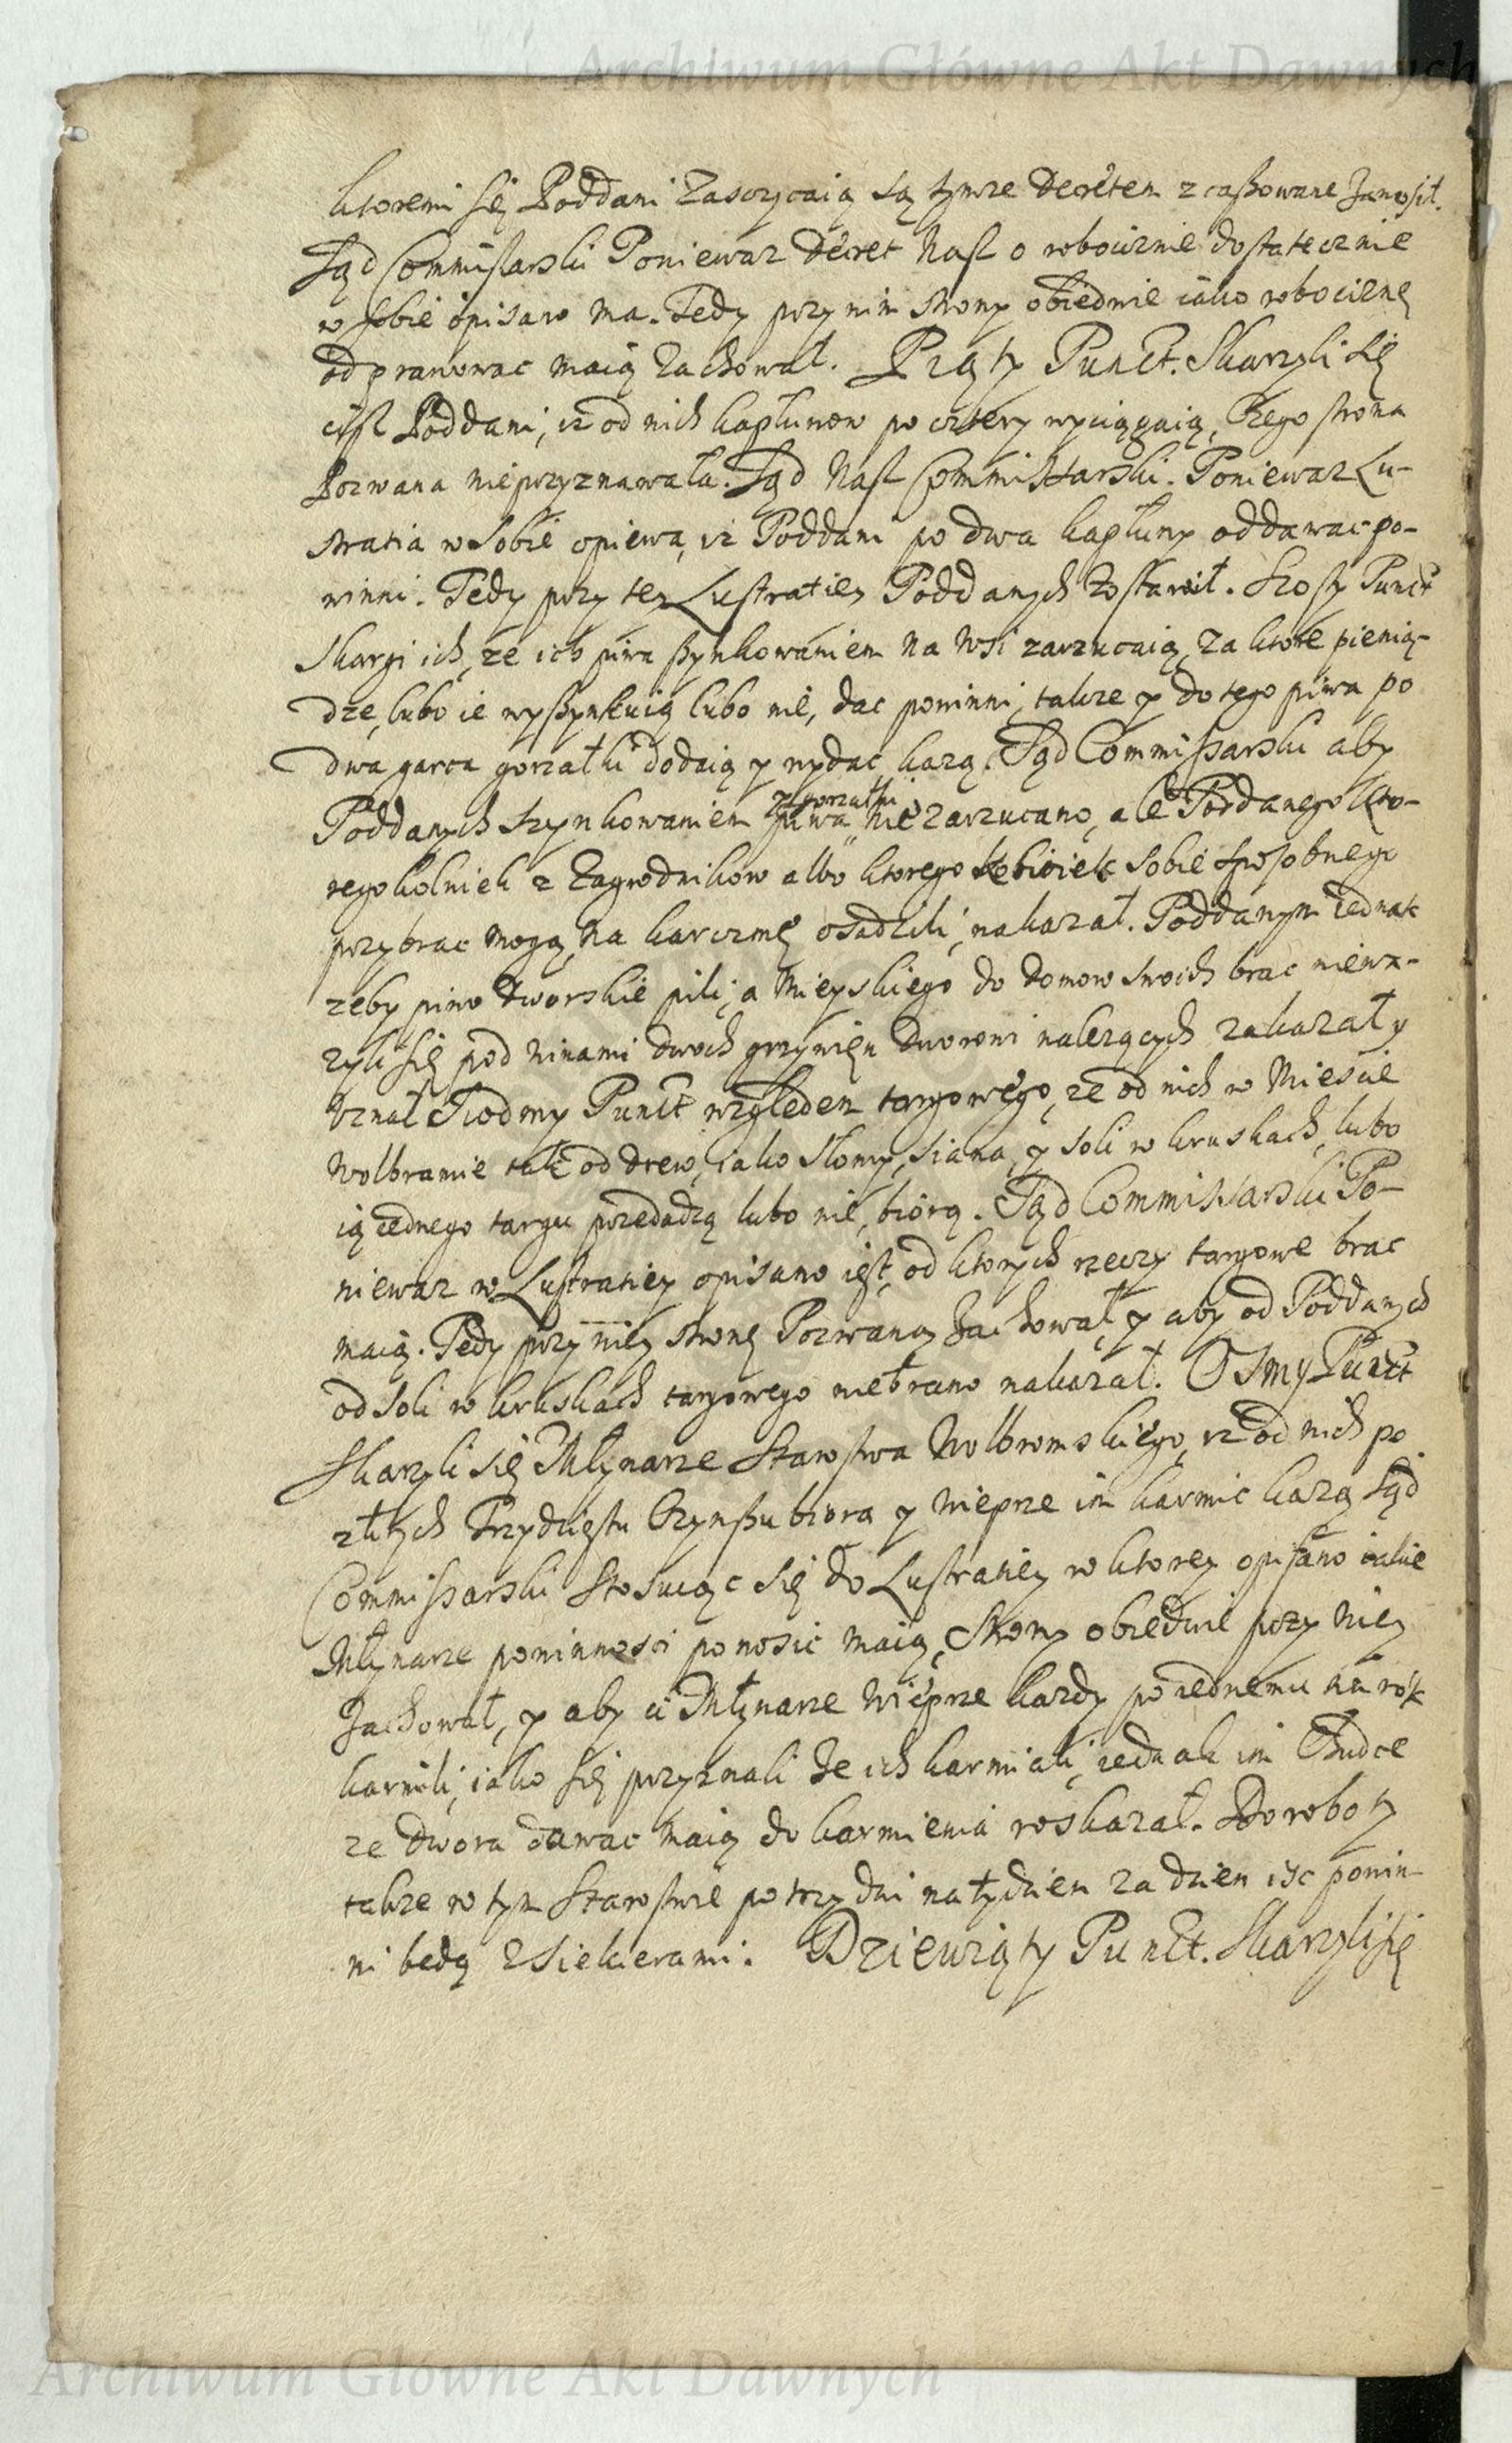 Archiwum Główne Akt Dawnych
ktoremi się Poddani Zasczycaią są tymze Decretem zcassowane Zanosił.
Sąd Commissarski Poniewaz Decret Nasz o robociznie dostatecznie
w sobie opisano ma. Tedy przy nim strony obiedwie iako robociznę
odprawowac maią Zachował. Piąty Punct. Skarzyli się
cisz Poddani, iz od nich kapłunow po cztery wyciągaią, Czego strona
Pozwana nieprzyznawała. Sąd Nasz Commissarski. Poniewaz Lu-
stratia w sobie opiewa, iz Poddani po dwa kapłuny oddawac po-
winni. Tedy przy tey Lustratiey Poddanych Zostawił. Szosty Punct
Skargi ich, ze ich piwa szynkowaniem na Wsi zarzucaią, za ktore pienią-
dze, lubo ie wyszynkuią lubo nie, dac powinni, takze y do tego piwa po
dwa garca gorzałki dodaią y wydac kazą. Sąd Commissarski aby
Poddanych szynkowaniem piwa y gorzałki niezarzucano, ale Poddanego kto-
regokolwiek z Zagrodnikow albo ktorego kolwiek sobie sposobnego
przybrac mogą, Na karczmę osadzili, nakazał. Poddanym iednak
zeby piwo dworskie pili, a Mieyskiego do domow swoich brac niewa-
zyli się pod winami dwoch grzywien dworowi nalezących zakazał y
uznał Siodmy Punct względem targowego, ze od nich w Miescie
Wolbramie tak od drew, iako słomy, siana, y soli w kruskach, lubo
ią iednego targu przedadzą lubo nie, biorą. Sąd Commissarski Po-
niewaz w Lustratiey opisano iest, od ktorych rzeczy targowe brac
maią. Tedy przy niey stronę Pozwaną Zachował, y aby od Poddanych
od soli w kruskach targowego niebrano nakazał. Osmy Punct
Skarzyli się Młynarze Starostwa Wolbromskiego, iz od nich po
złtych Trzydziestu Czynszu biora y Wieprze im karmic kazą Sąd
Commissarski stosuiąc się do Lustratiey w ktorey opisano iakie
Młynarze powinnosci ponosic maią, Strony obiedwie przy niey
Zachował, y aby ci Młynarze Wieprze kazdy po iednemu na rok
karmili, iako się przyznali ze ich karmiali, iednak im
ze dwora dawac maią do karmienia roskazał. Do roboty
takze w tym Starostwie po trzy dni na tydzien za dzien isc powin-
ni będą z siekierami. Dziewiąty Punct. Skarzyli się
Archiwum Główne Akt Dawnych